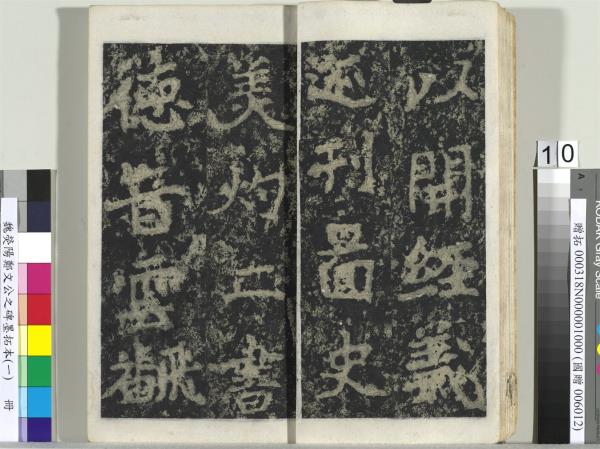 以開經義
迹刊圖史
美灼二書
德音雲飜
魏滎陽鄭文公之碑墨拓本(一) 冊
10
A
KODAK Gray Scale
贈拓 000318N000001000 (國贈 006012)